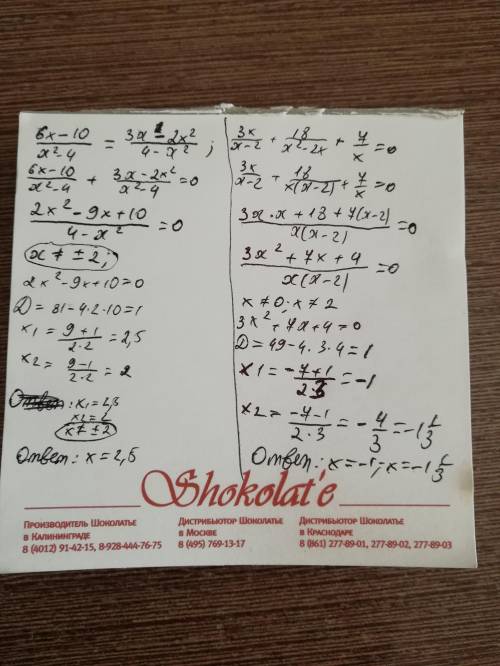 6x-10/x²-4 = 3x-2x²/4-x²;
6x-10/x²-4 + 3x-2x²/x²-4 =0
2x²-9x+10/4-x² =0
x≠±2;
2x²-9x+10=0
D=81-4·2·10=1
x1=9+1/2·2=2,5
x2=9-1/2·2=2
x2=2
x≠±2
Ответ: x=2,5
3x/x-2 + 18/x²-2x + 7/x =0
3x/x-2 + 18/x(x-2) + 7/x =0
3x·x+18+7(x-2)/x(x-2) =0
3x²+7x+4/x(x-2) =0
x≠0; x≠2
3x²+7x+4=0
D=49-4·3·4=1
x1=-7+1/2·3=-1
x2=-7-1/2·3=-4/3=-1 1/3
Ответ: x=-1; x=-1 1/3
Shokolat'e
Производитель Шоколатье
в Калининграде
8 (4012) 91-42-15, 8-928-444-76-75
Дистрибьютор Шоколатье
в Москве
8 (495) 769-13-17
Дистрибьютор Шоколатье
в Краснодаре
8 (861) 277-89-01, 277-89-02, 277-89-03